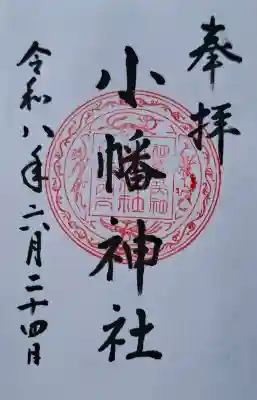 奉拝
小幡神社
令和八年六月二十四日